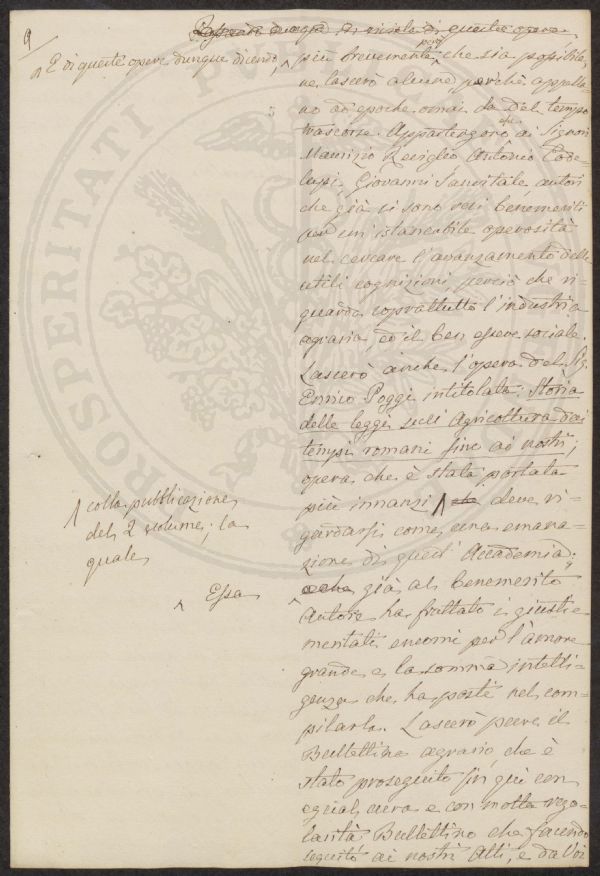 9
Passando dunque a
di queste opere
E di queste opere dunque dicendo,
più brevemente però che sia possibile,
ne lascerò alcune perchè appella-
no ad epoche omai da del tempo
trascorse. Appartengono che ai Signori
Maurizio Reviglio Antonio Code-
lupi, Giovanni Sanvitale autori
che già si sono resi benemeriti
per un'istancabile operosità
nel cercare l'avanzamento delle
utili cognizioni, perciò che ri-
guarda soprattutto l'industria
agraria, ed il ben essere sociale.
Lascerò anche l'opera del Sig.
Enrico Poggi intitolata: Storia
delle leggi sull'Agricoltura dai
tempi romani fino ai nostri;
opera che è stata portata
più innanzi che deve ri-
colla pubblicazione
del 2 volume; la
quale
guardarsi come una emana-
zione di quest'Accademia;
e che già al benemerito
Essa
Autore ha fruttato i giusti e
meritati encomi per l'amore
grande e la somma intelli-
genza che ha posti nel com-
pilarla. Lascerò pure il
Bullettino agrario, che è
stato proseguito fin qui con
egual cura e con molta rego-
larità Bullettino che facendo
seguito ai nostri Atti, e da Voi
PROSPERITATI PUBLICAE